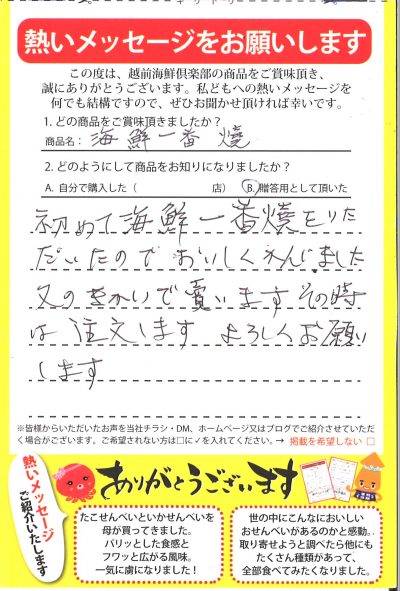 熱いメッセージをお願いします
この度は、越前海鮮倶楽部の商品をご賞味頂き、
誠にありがとうございます。私どもへの熱いメッセージを
何でも結構ですので、ぜひお聞かせ頂ければ幸いです。
1. どの商品をご賞味頂きましたか?
商品名: 海鮮一番 燒
2. どのようにして商品をお知りになりましたか?
A. 自分で購入した ( 店) B. 贈答用として頂いた
初めて海鮮一番燒をいた
だいたのでおいしく
又のきかいで買います その時
は 注文します よろしくお願い
します
※皆様からいただいたお声を当社チラシ・DM、ホームページ又はブログでご紹介させていただ
く場合がございます。ご希望されない方は□に✓を入れてください。→ 掲載を希望しない □
熱いメッセージ
ご紹介いたします
ありがとうございます
たこせんべいといかせんべいを
母が買ってきました。
パリッとした食感と
フワッと広がる風味。
一気に虜になりました!
世の中にこんなにおいしい
おせんべいがあるのかと感動。
取り寄せようと調べたら他にも
たくさん種類があって、
全部食べてみたくなりました。